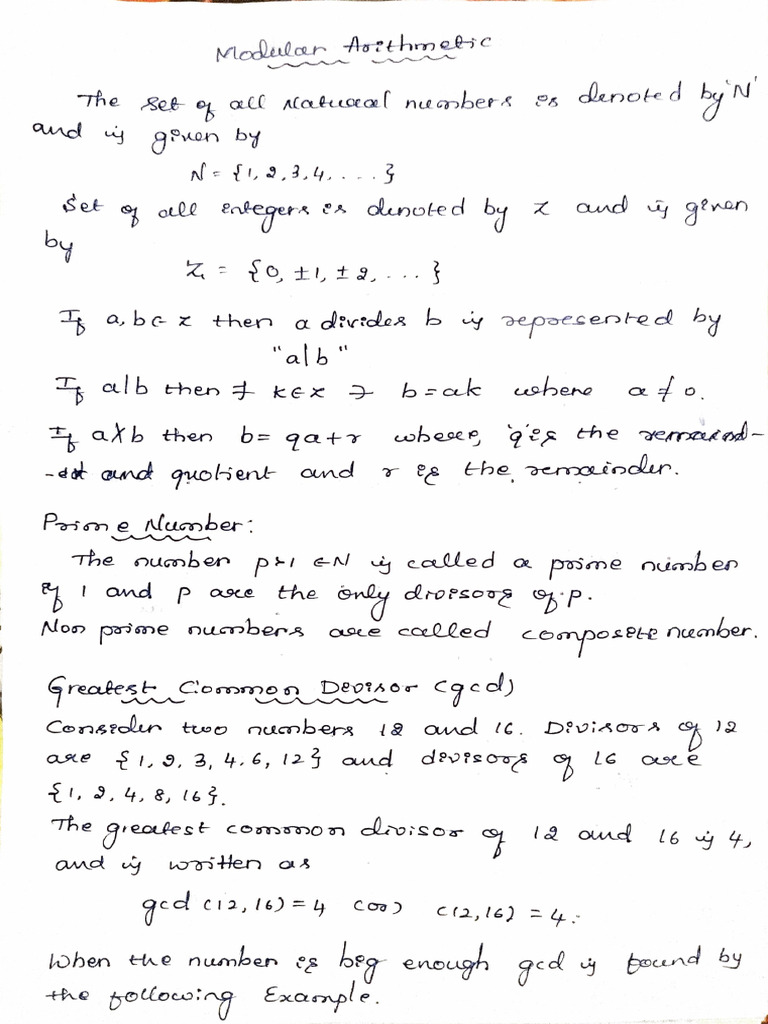 Modular Arithmetic
The set of all Natural numbers is denoted by 'N'
and is given by
N = {1, 2, 3, 4, . . . . }
Set of all integers is denoted by Z and is given
by
Z = {0, ±1, ± 2, ... }
If a, b ∈ z then a divides b is represented by
"a|b"
If a|b then ∃ k ∈ z ∋ b = ak where a ≠ 0.
If a∤b then b = qa + r where, 'q' is the remaind-
and quotient and r is the remainder.
Prime Number:
The number p>1 ∈ N is called a prime number
if 1 and p are the only divisors of p.
Non prime numbers are called composite number.
Greatest Common Devisor (gcd)
Consider two numbers 12 and 16. Divisors of 12
are {1, 2, 3, 4, 6, 12} and divisors of 16 are
{1, 2, 4, 8, 16}.
The greatest common divisor of 12 and 16 is 4,
and is written as
gcd (12, 16) = 4 (or) (12, 16) = 4.
When the number is big enough gcd is found by
the following Example.